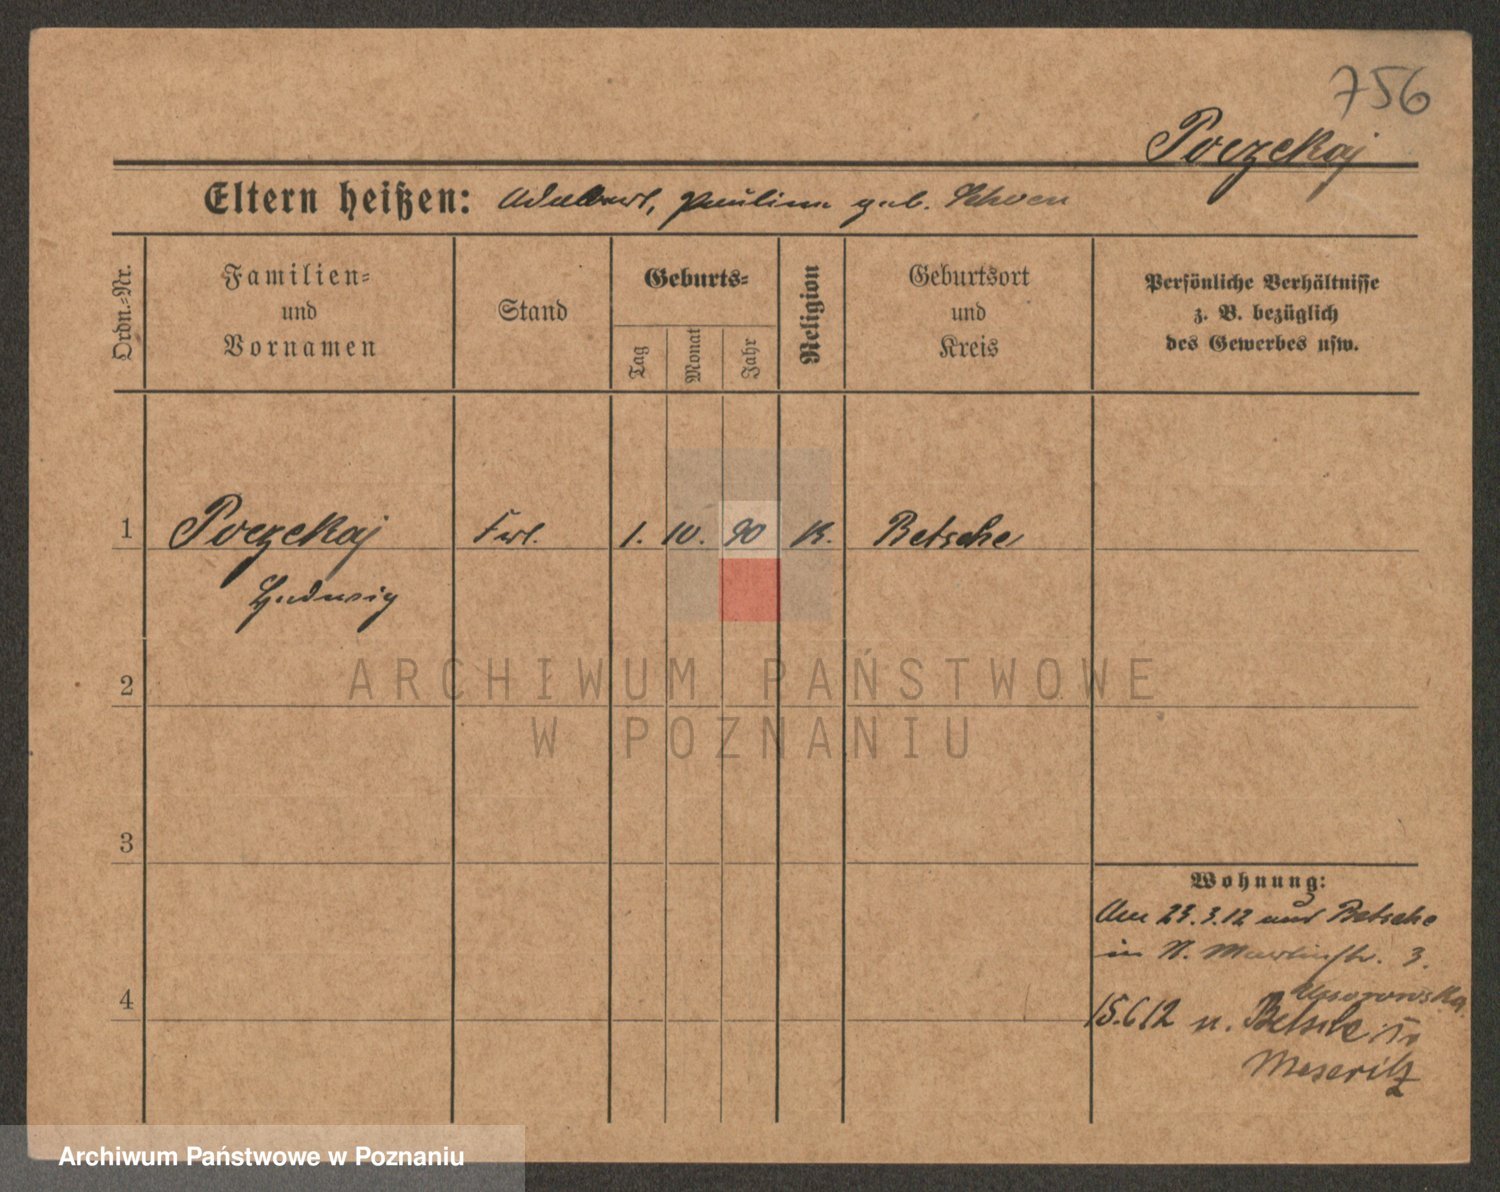 756
Poczekaj
Eltern heißen: Adalbert, Paulina geb. Schoen
Ordn.-Nr.
Familien-
und
Vornamen
Stand
Geburts-
Tag
Monat
Jahr
Religion
Geburtsort
und
Kreis
Persönliche Verhältnisse
z. B. bezüglich
des Gewerbes usw.
1 Poczekaj Frl. 1. 10. 90 K. Betsche
Hedwig
2
3
4
Wohnung:
Am 23.3.12 aus Betsche
in N. Martinstr. 3.
15.6.12 n. Betsche Kr
Meseritz
ARCHIWUM PAŃSTWOWE
W POZNANIU
Archiwum Państwowe w Poznaniu